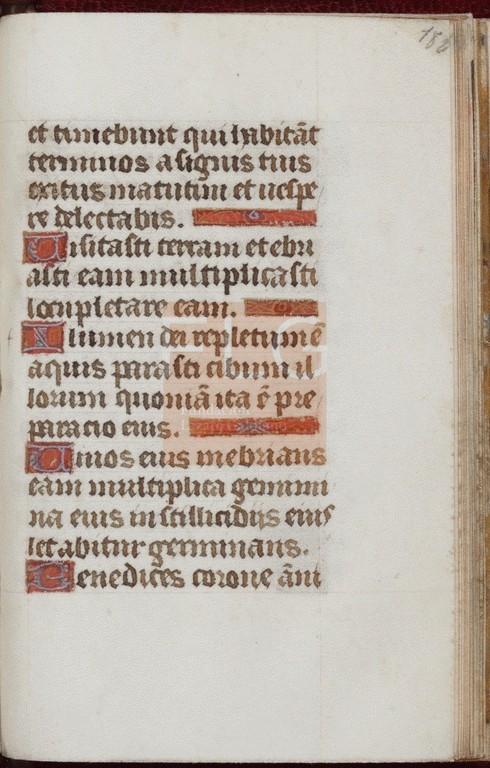 182
et timebunt qui habitāt
terminos a signis tuis
exitus matutini et uespe
re delectabis.
Uisitasti terram et ebri
asti eam multiplicasti
locupletare eam.
Flumen dei repletum ē
aquis parasti cibum il
lorum quoniā ita ē pre
paracio eius.
Riuos eius inebrians
eam multiplica genimi
na eius in stillicidijs eius
letabitur germinans.
Benedices corone āni